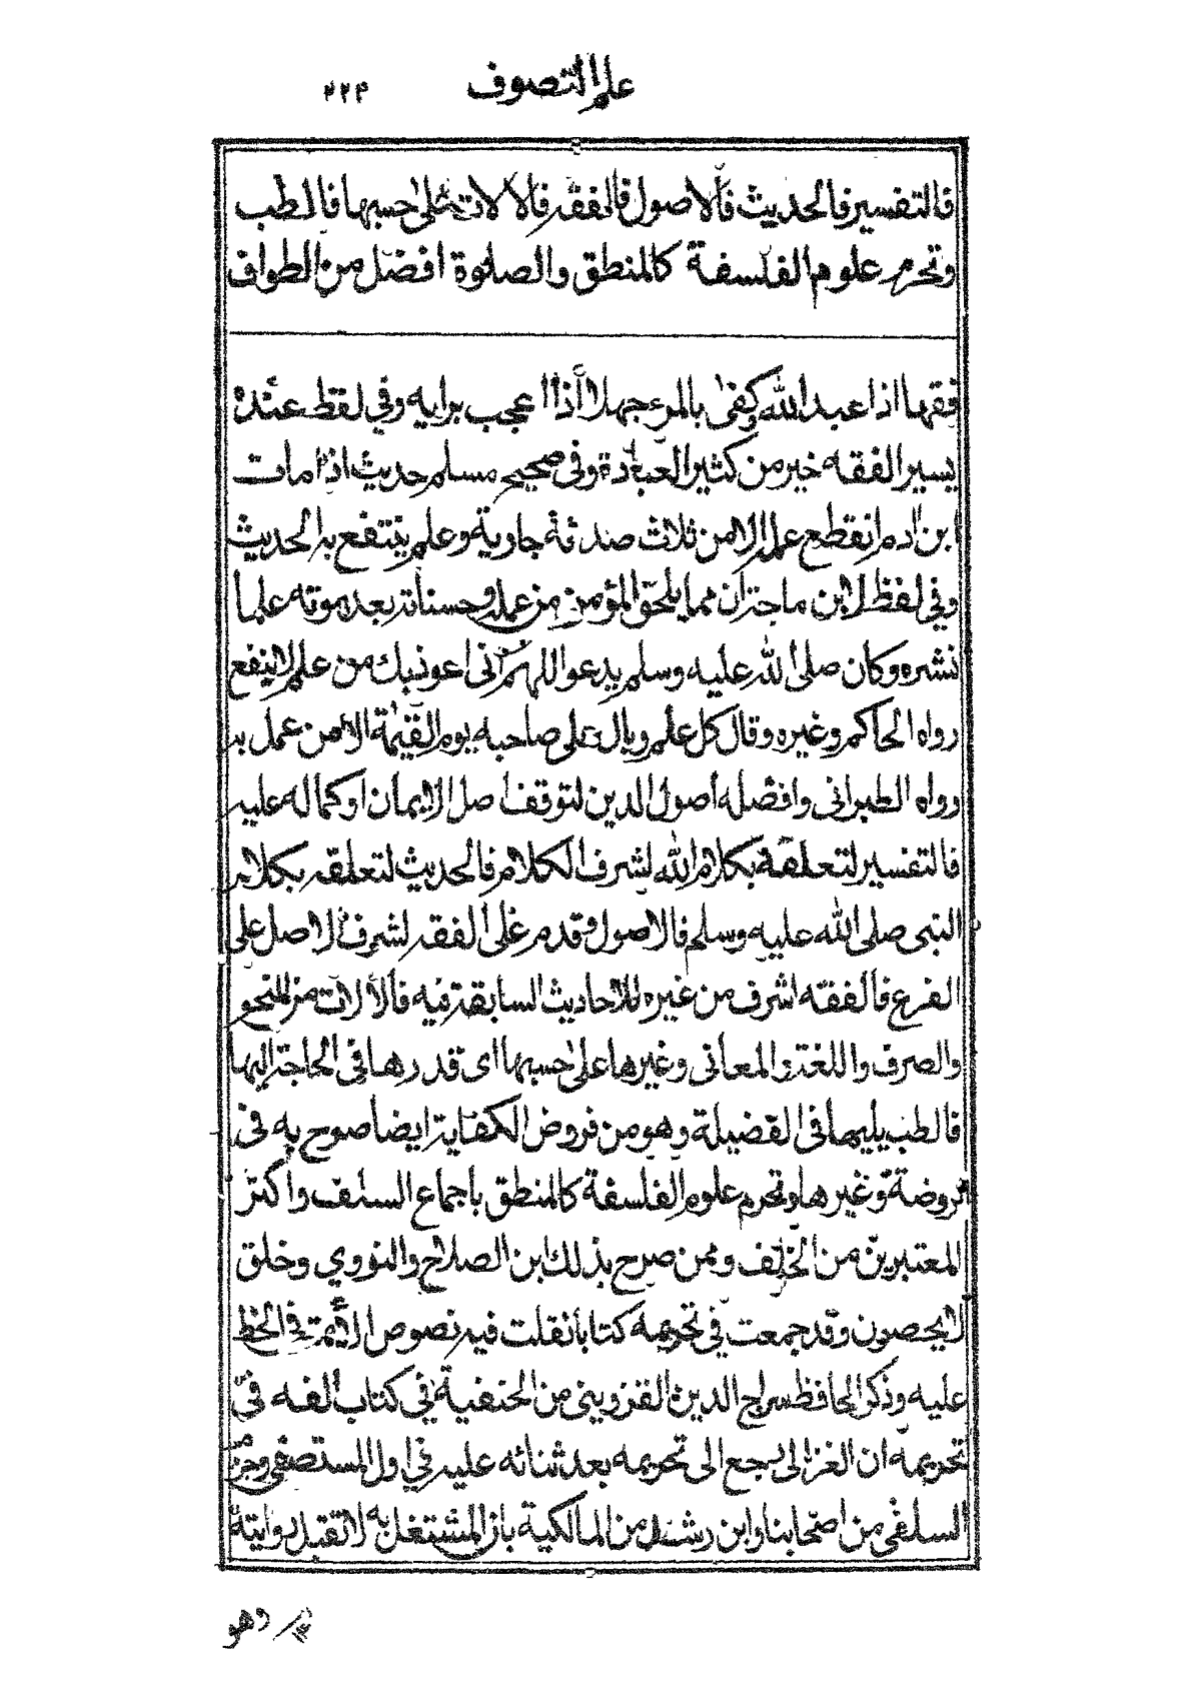 علم التصوف ٢٢٣
فالتفسير فالحديث فالاصول فالفقه فالالات على حسبها فالطب
وتحرم علوم الفلسفة كالمنطق والصلوة افضل من الطواف
فقها اذا عبد الله وكفى بالمرء جهلا أذا اعجب برايه وفي لفظ عنده
يسير الفقه خير من كثير العبادة وفى صحيح مسلم حديث اذا مات
ابن آدم انقطع عمله الا من ثلاث صدقة جارية وعلم ينتفع به الحديث
وفي لفظ لابن ماجة ان مما يلحق المؤمن من عمله وحسناته بعد موته علما
نشره وكان صلى الله عليه وسلم يدعو اللهم انى اعوذ بك من علم لا ينفع
رواه الحاكم وغيره وقال كل علم وبال على صاحبه يوم القيمة الا من عمل به
رواه الطبرانى وافضله أصول الدين لتوقف اصل الايمان او كماله عليه
فالتفسير لتعلقه بكلام الله لشرف الكلام فالحديث لتعلقه بكلام
النبى صلى الله عليه وسلم فالاصول وقدم على الفقه لشرف الاصل على
الفرع فالفقه اشرف من غيره للاحاديث السابقة فيه فالألات من النحو
والصرف واللغة والمعانى وغيرها على حسبها اى قدرها في الحاجة اليها
فالطب يليها فى الفضيلة وهو من فروض الكفاية ايضا صرح به فى
الروضة وغيرها وتحرم علوم الفلسفة كالمنطق باجماع السلف واكثر
المعتبرين من الخلف وممن صرح بذلك ابن الصلاح والنووي وخلق
لا يحصون وقد جمعت في تحريمه كتابا نقلت فيه نصوص الأئمة في الحط
عليه وذكر الحافظ سراج الدين القزوينى من الحنفية في كتاب ألفه فى
تحريمه ان الغزالى رجع الى تحريمه بعد ثنائه عليه في اول المستصفى وجزم
السلفى من اصحابنا وابن رشد من المالكية بان المشتغل به لا تقبل روايته
وهو